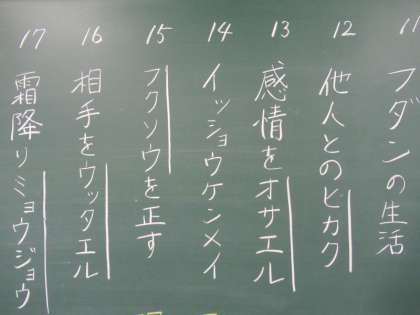 11 フダンの生活
12 他人とのヒカク
13 感情をオサエル
14 イッショウケンメイ
15 フクソウを正す
16 相手をウッタエル
17 霜降りミョウジョウ